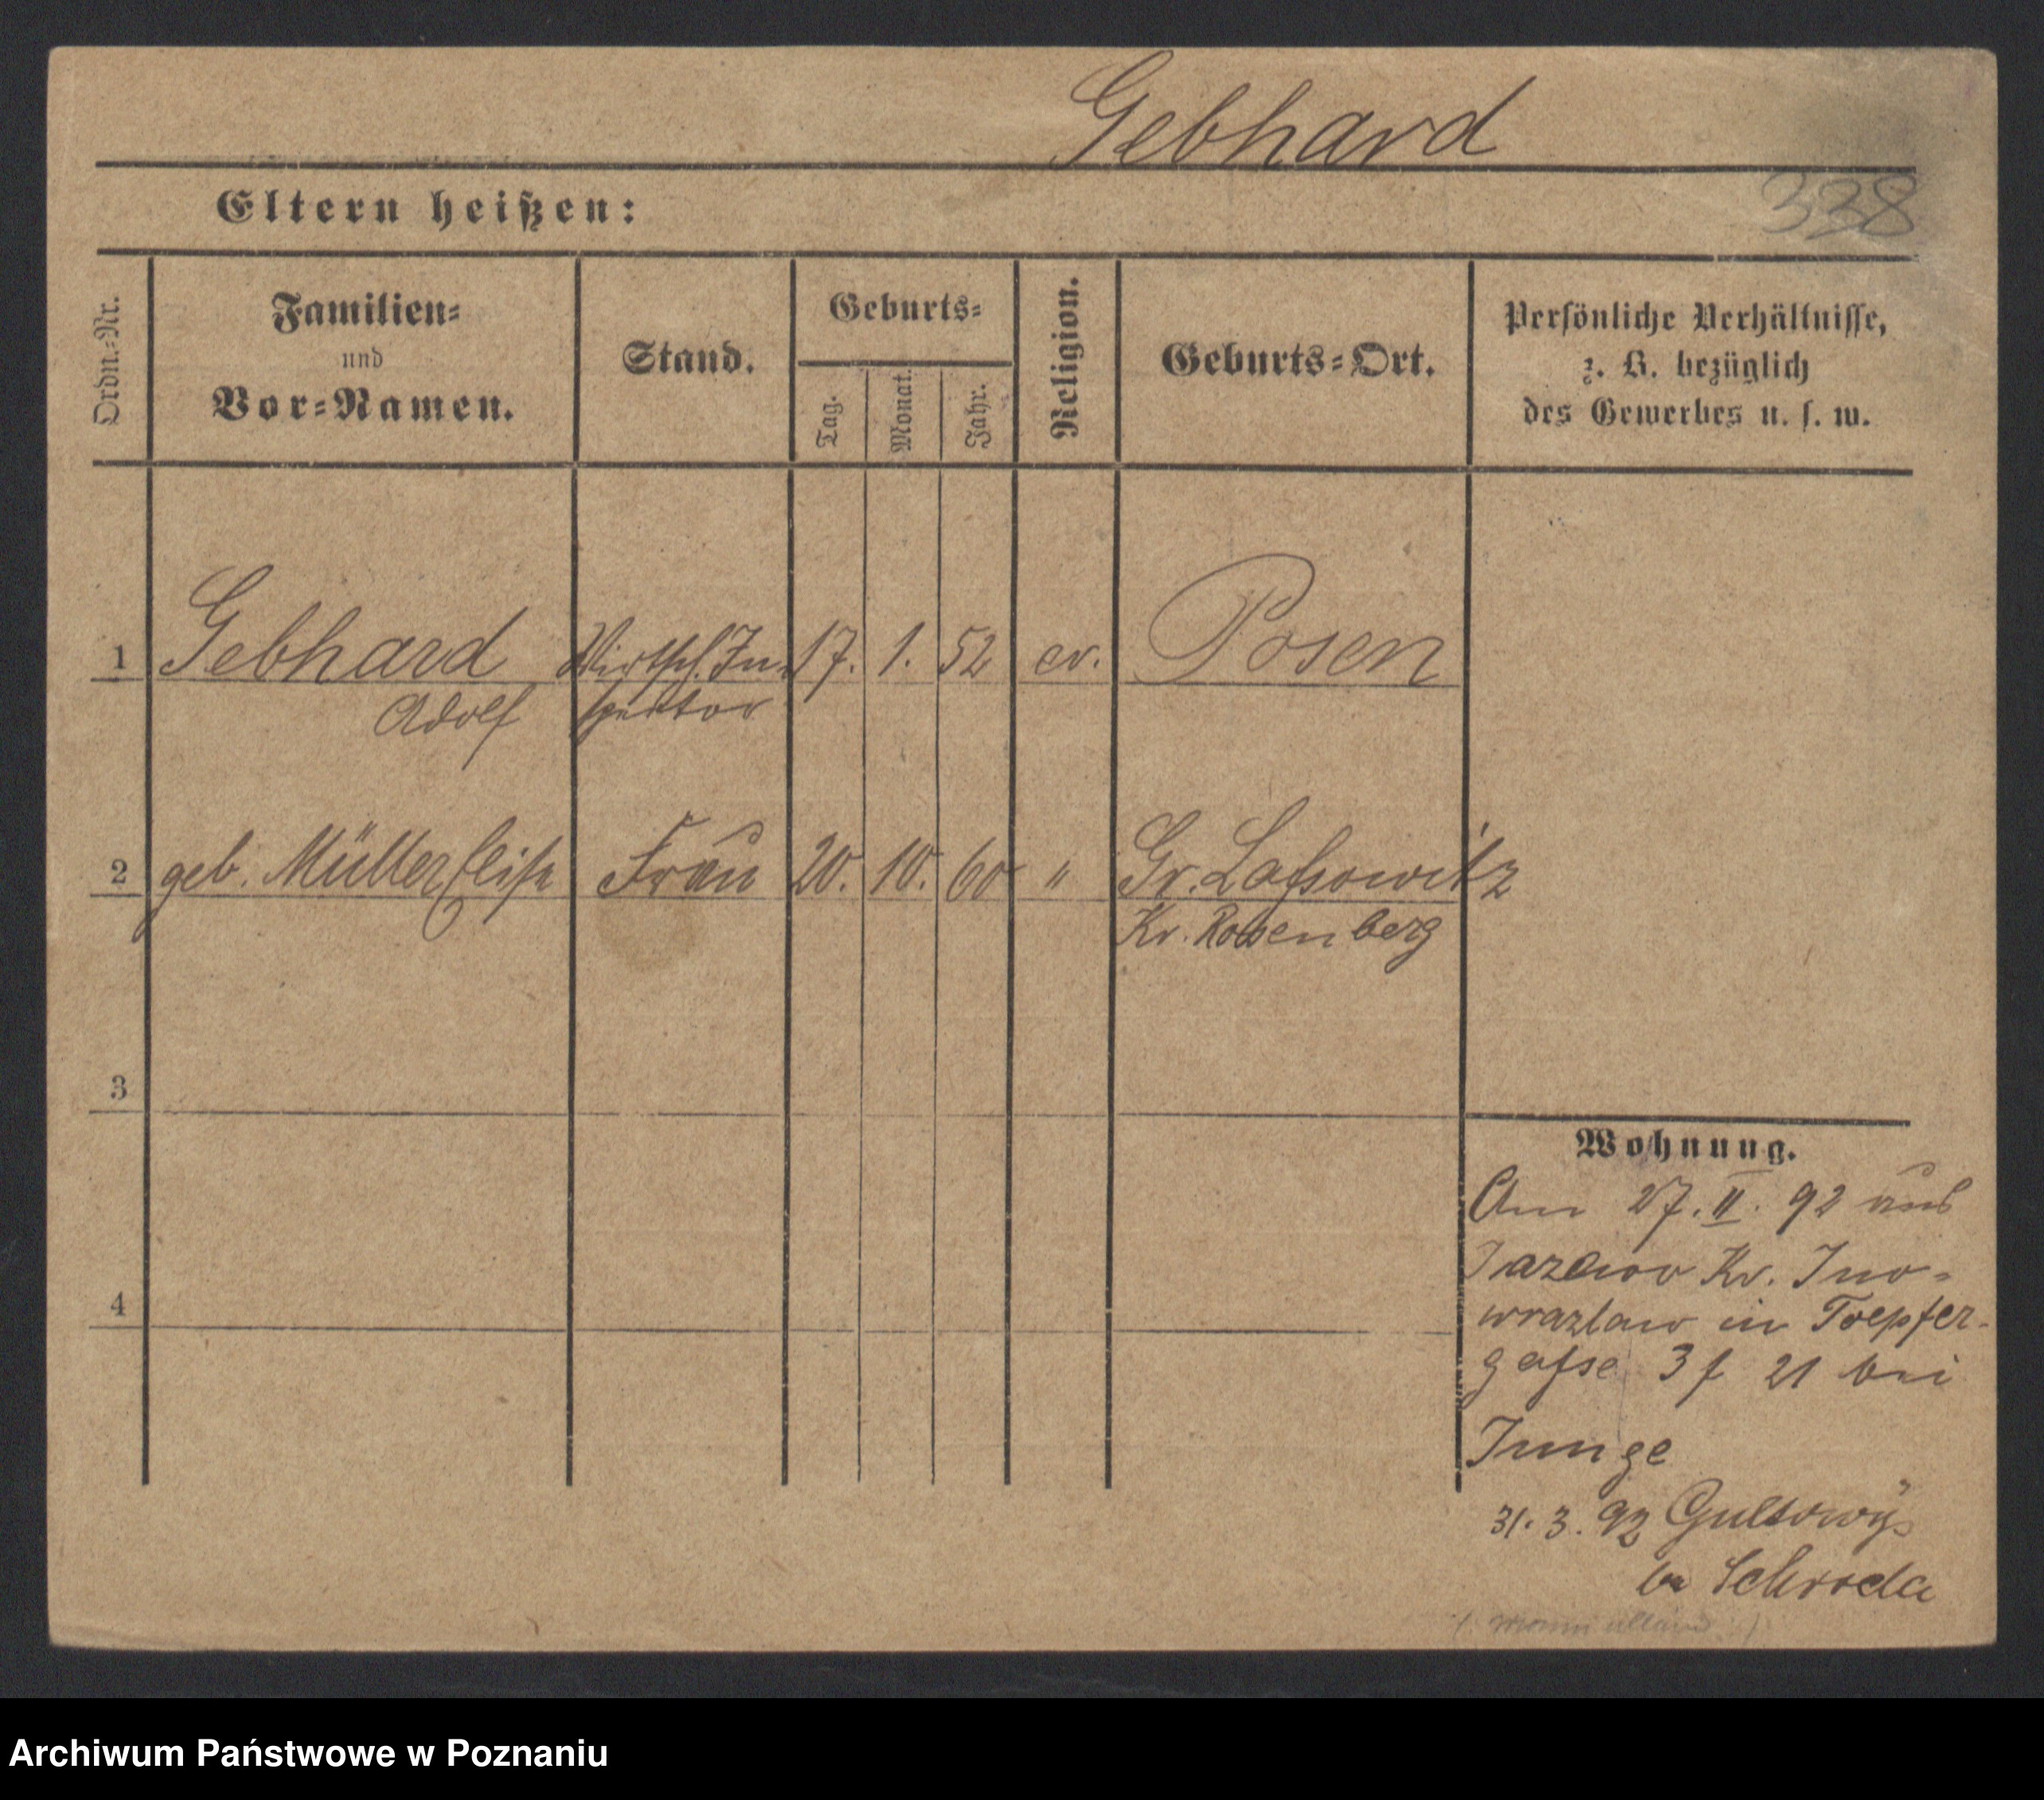 Gebhard
338
Eltern heißen:
Ordn.-Nr.
Familien-
und
Vor-Namen.
Stand.
Geburts-
Tag.
Monat.
Jahr.
Religion.
Geburts-Ort.
Persönliche Verhältnisse,
z. B. bezüglich
des Gewerbes u. s. w.
1 Gebhard Wirtsch. In- 17. 1. 52 ev. Posen
Adolf spektor
2 geb. Müller Elise Frau 20. 10. 60 " Gr. Lassowitz
Kr. Rosenberg
3
Wohnung.
Am 27. II. 92 aus
Kr. Ino-
4
wrazlaw in Toepfer-
gasse 3 f 21 bei
Junge
31. 3. 92 Gultowy
bei Schroda
Archiwum Państwowe w Poznaniu